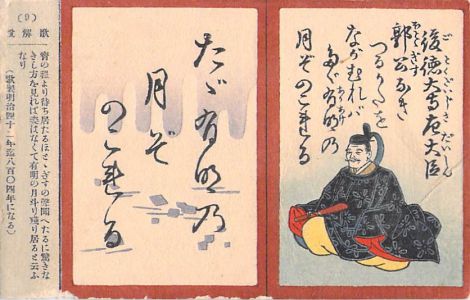 後徳大寺左大臣
ごとくだいじさだいじん
郭公なき
つるかたを
ながむれば
たゞ有明乃
月ぞのこれる
たゞ有明乃
月ぞ
のこれる
(9)
宵の程より待ち居たるほとゝぎすの聲聞へたるに驚きな
きし方を見れば姿はなくて有明の月斗り残り居ると云ふ
なり
(歌製明治四十一年迄八百〇四年になる)